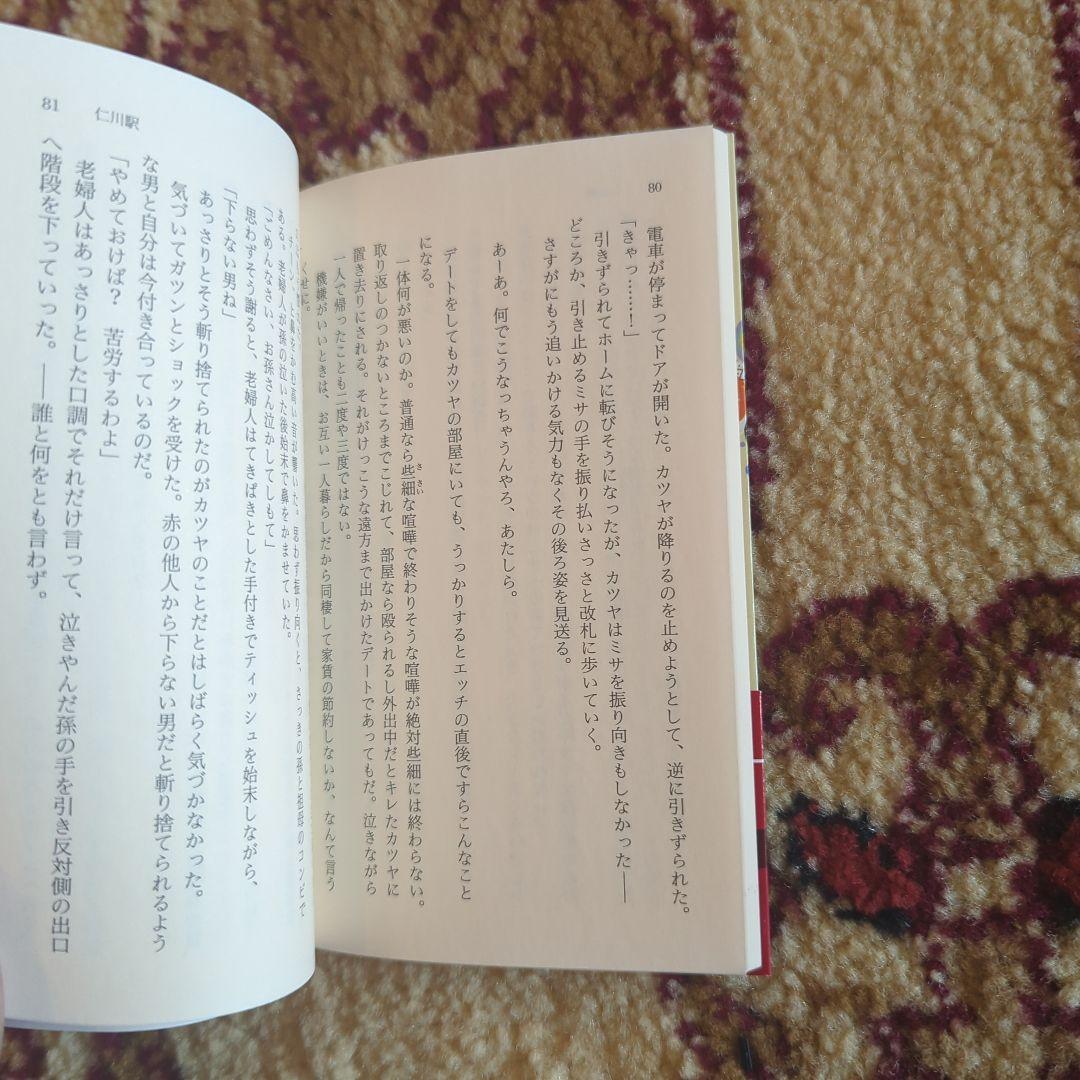 80
電車が停まってドアが開いた。カツヤが降りるのを止めようとして、逆に引きずられた。
「きゃっ……！」
引きずられてホームに転びそうになったが、カツヤはミサを振り向きもしなかった――
どころか、引き止めるミサの手を振り払いさっさと改札に歩いていく。
さすがにもう追いかける気力もなくその後ろ姿を見送る。
あーあ。何でこうなっちゃうんやろ、あたしら。
デートをしてもカツヤの部屋にいても、うっかりするとエッチの直後ですらこんなこと
になる。
一体何が悪いのか。普通なら些細な喧嘩で終わりそうな喧嘩が絶対些細には終わらない。
ささい
取り返しのつかないところまでこじれて、部屋なら殴られるし外出中だとキレたカツヤに
置き去りにされる。それがけっこうな遠方まで出かけたデートであってもだ。泣きながら
一人で帰ったことも二度や三度ではない。
機嫌がいいときは、お互い一人暮らしだから同棲して家賃の節約しないか、なんて言う
くせに。
81
仁川駅
高い音が響いた。思わず振り向くと、さっきの孫と祖母のコンビで
ある。老婦人が孫の泣いた後始末で鼻をかませていた。
「ごめんなさい、お孫さん泣かしてしもて」
思わずそう謝ると、老婦人はてきぱきとした手付きでティッシュを始末しながら、
「下らない男ね」
あっさりとそう斬り捨てられたのがカツヤのことだとはしばらく気づかなかった。
気づいてガツンとショックを受けた。赤の他人から下らない男だと斬り捨てられるよう
な男と自分は今付き合っているのだ。
「やめておけば？　苦労するわよ」
老婦人はあっさりとした口調でそれだけ言って、泣きやんだ孫の手を引き反対側の出口
へ階段を下っていった。――誰と何をとも言わず。